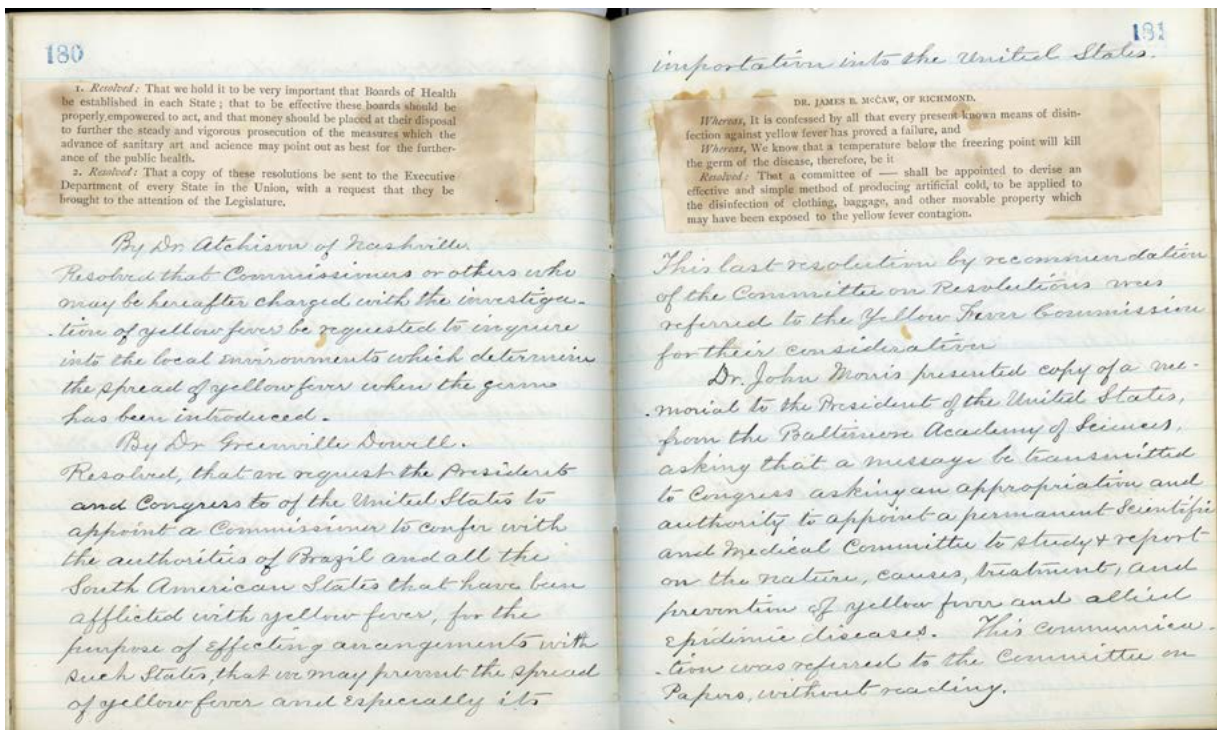 180
1. Resolved: That we hold it to be very important that Boards of Health
be established in each State; that to be effective these boards should be
properly empowered to act, and that money should be placed at their disposal
to further the steady and vigorous prosecution of the measures which the
advance of sanitary art and acience may point out as best for the further-
ance of the public health.
2. Resolved: That a copy of these resolutions be sent to the Executive
Department of every State in the Union, with a request that they be
brought to the attention of the Legislature.
By Dr. Atchison of Nashville.
Resolved that Commissioners or others who
may be hereafter charged with the investiga-
-tion of yellow fever be requested to inquire
into the local environments which determine
the spread of yellow fever when the germ
has been introduced.
By Dr Greenville Dowell.
Resolved, that we request the President
and Congress to of the United States to
appoint a Commissioner to confer with
the authorities of Brazil and all the
South American States that have been
afflicted with yellow fever, for the
purpose of effecting arrangements with
such States, that we may prevent the spread
of yellow fever and especially its
181
importation into the United States.
DR. JAMES B. McCAW, OF RICHMOND.
Whereas, It is confessed by all that every present known means of disin-
fection against yellow fever has proved a failure, and
Whereas, We know that a temperature below the freezing point will kill
the germ of the disease, therefore, be it
Resolved: That a committee of — shall be appointed to devise an
effective and simple method of producing artificial cold, to be applied to
the disinfection of clothing, baggage, and other movable property which
may have been exposed to the yellow fever contagion.
This last resolution by recommendation
of the Committee on Resolutions was
referred to the Yellow Fever Commission
for their consideration
Dr. John Morris presented copy of a me-
-morial to the President of the United States,
from the Baltimore Academy of Sciences,
asking that a message be transmitted
to Congress asking an appropriation and
authority to appoint a permanent Scientific
and Medical Committee to study & report
on the nature, causes, treatment, and
prevention of yellow fever and allied
Epidimic diseases. This communica-
-tion was referred to the Committee on
Papers, without reading.